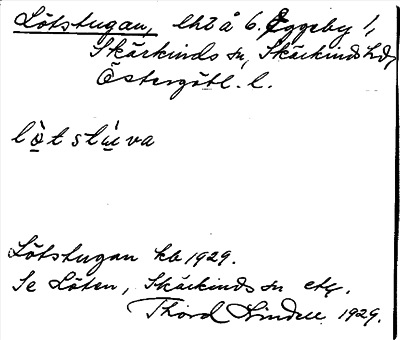 Lötstugan, lht å 6. Eggeby 1,
Skärkinds sn, Skärkinds hd,
Östergötl. l.
lòtslúva
Lötstugan kb 1929.
Se Löten, Skärkinds sn etc.
Thord Lindell 1929.